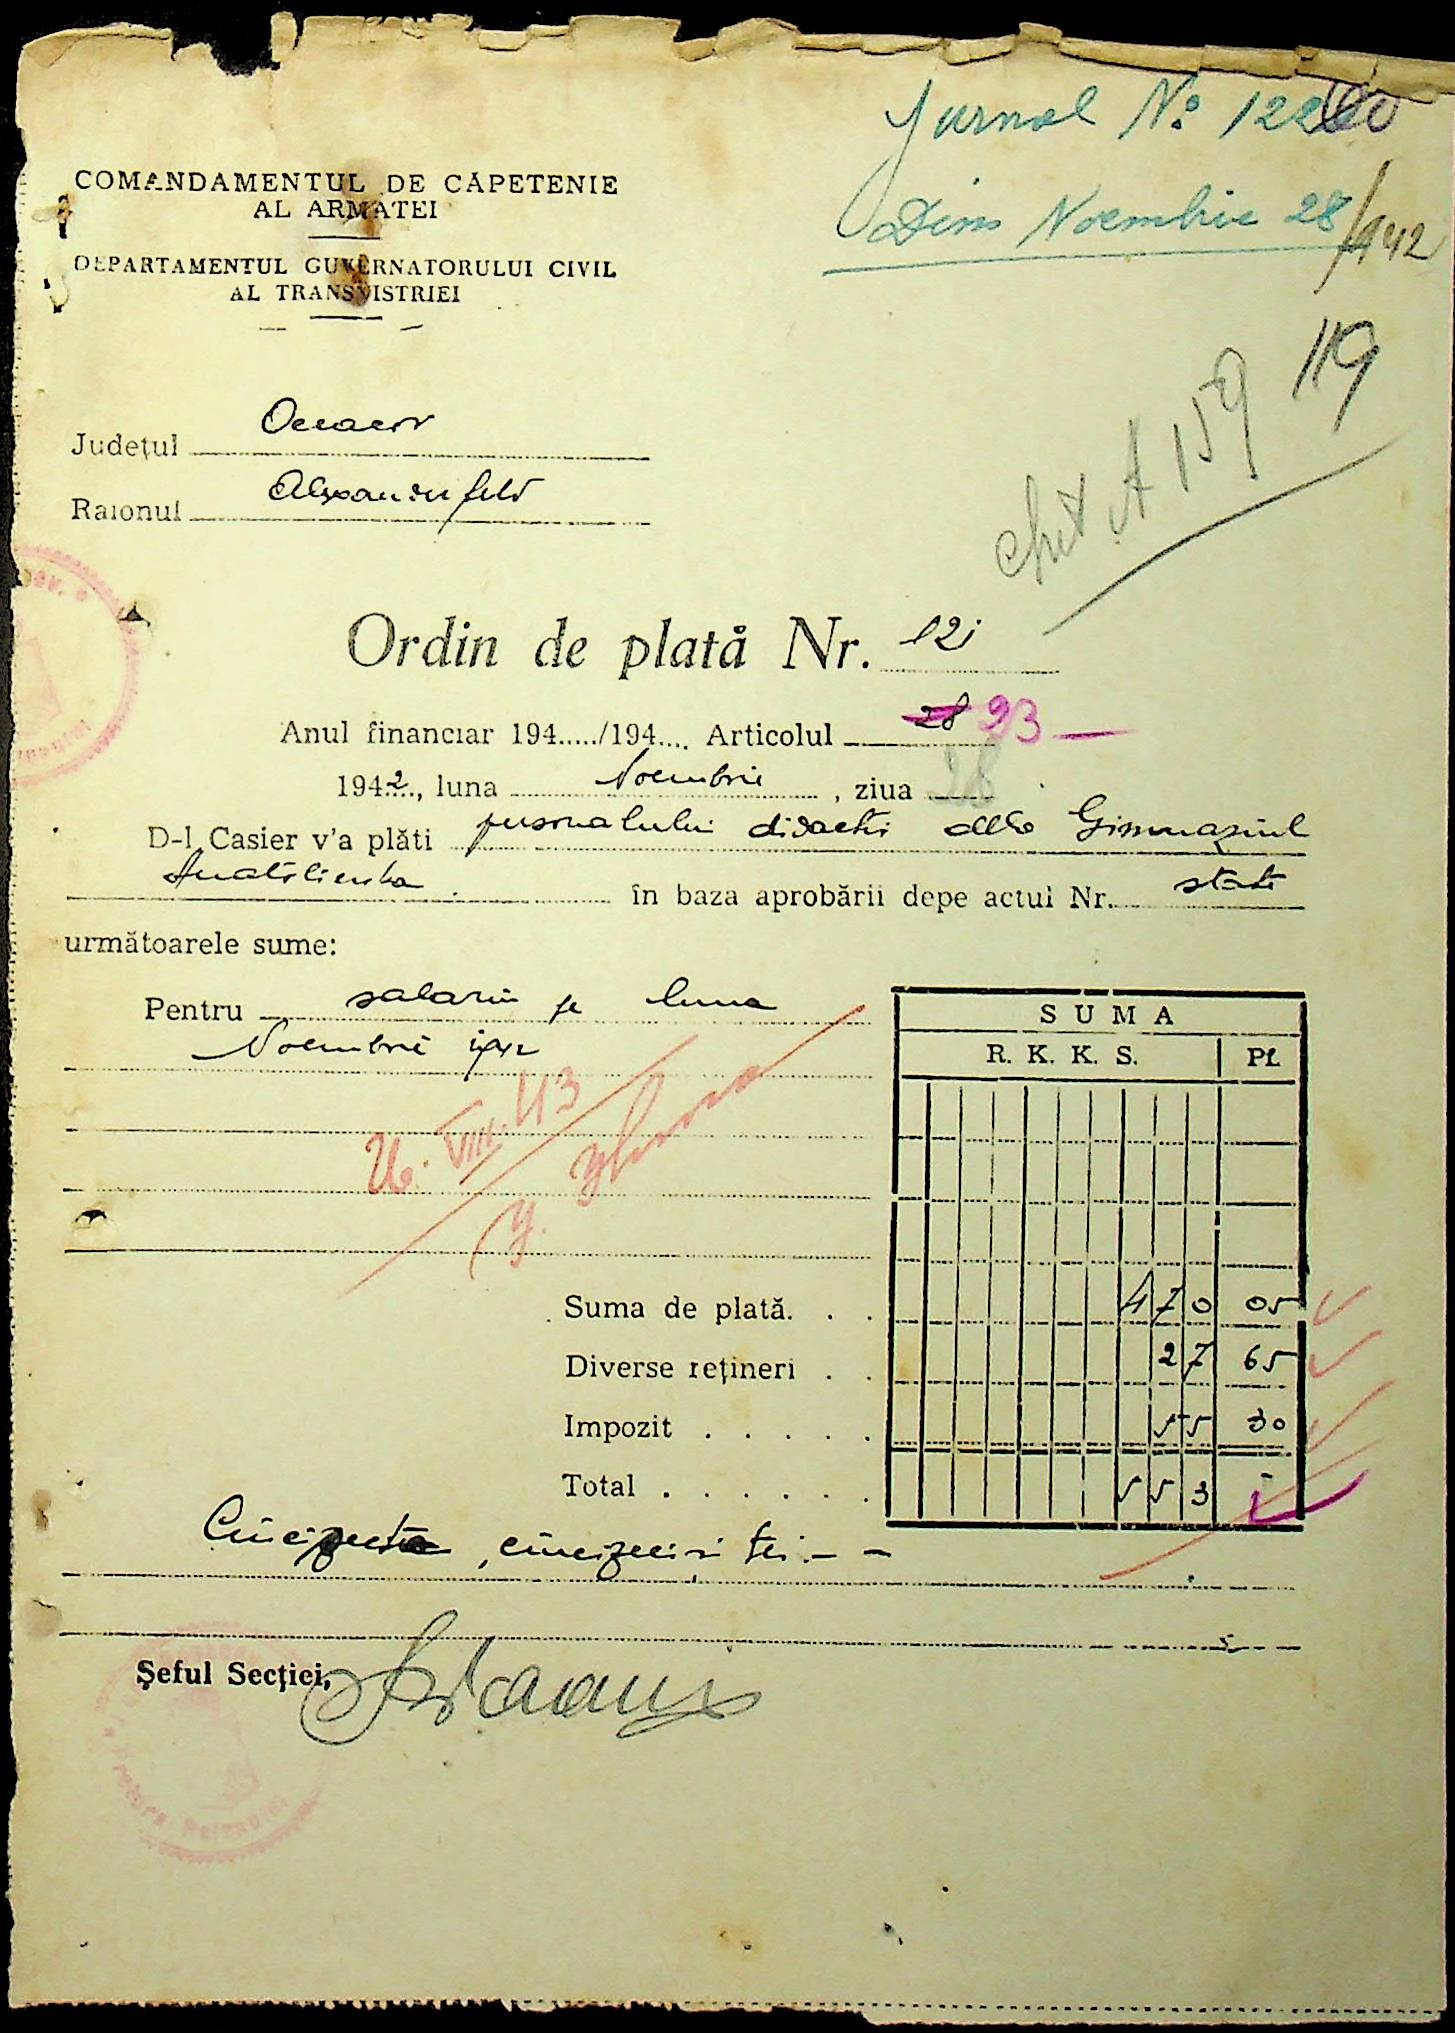 Jurnal No: 12280
Din Noembrie 28/942
COMANDAMENTUL DE CAPETENIE
AL ARMATEI
DEPARTAMENTUL GUVERNATORULUI CIVIL
AL TRANSNISTRIEI
119
chit A 159
Județul Oceacov
Raionul Alexanderfeld
Ordin de plată Nr. 121
Anul financiar 194...../194.... Articolul 28 93
1942, luna Noembrie, ziua 28
D-l Casier v'a plăti personalului didactic dela Gimnaziul
Anatolienka în baza aprobării depe actul Nr. state
următoarele sume:
Pentru salarii pe luna
Noembrie 1942
SUMA
R. K. K. S. Pf.
26. VIII. 43
Suma de plată. . . 470 05
Diverse rețineri . . 27 65
Impozit . . . . . 55 30
Total . . . . . . 553 -
Cincisute, cincizeci și trei - -
Șeful Secției,